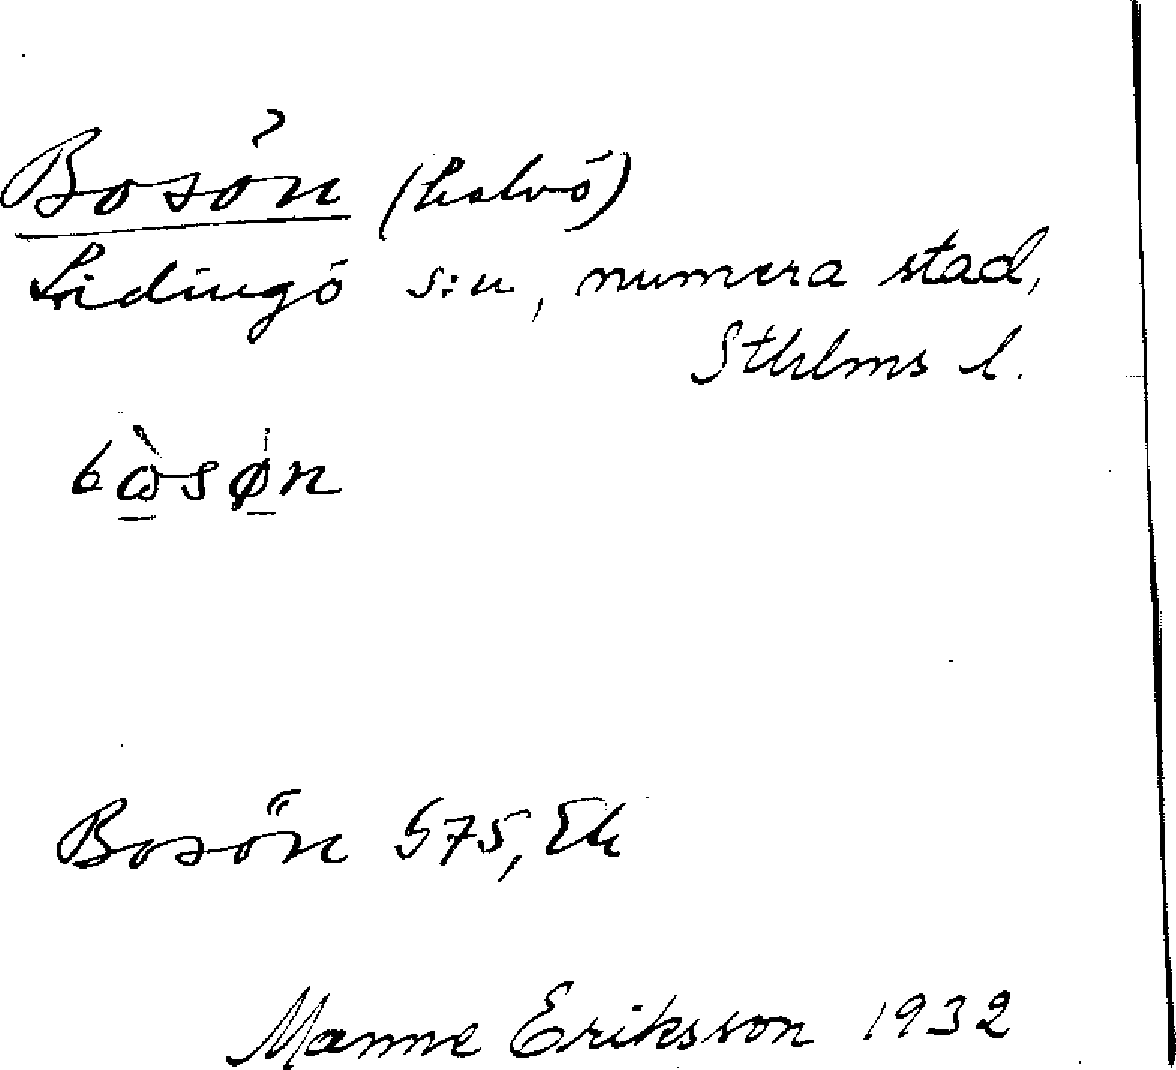 Bosön (halvö)
Lidingö s:n, numera stad,
Sthlms l.
bɷ̀søn
Bosön S75, Ek
Manne Eriksson 1932